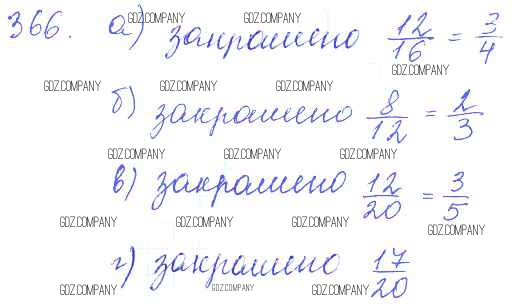 366. а) закрашено 12/16 = 3/4
б) закрашено 8/12 = 2/3
в) закрашено 12/20 = 3/5
г) закрашено 17/20
GDZ.COMPANY GDZ.COMPANY
GDZ.COMPANY
GDZ.COMPANY GDZ.COMPANY GDZ.COMPANY
GDZ.COMPANY GDZ.COMPANY GDZ.COMPANY
GDZ.COMPANY GDZ.COMPANY GDZ.COMPANY GDZ.COMPANY
GDZ.COMPANY GDZ.COMPANY GDZ.COMPANY